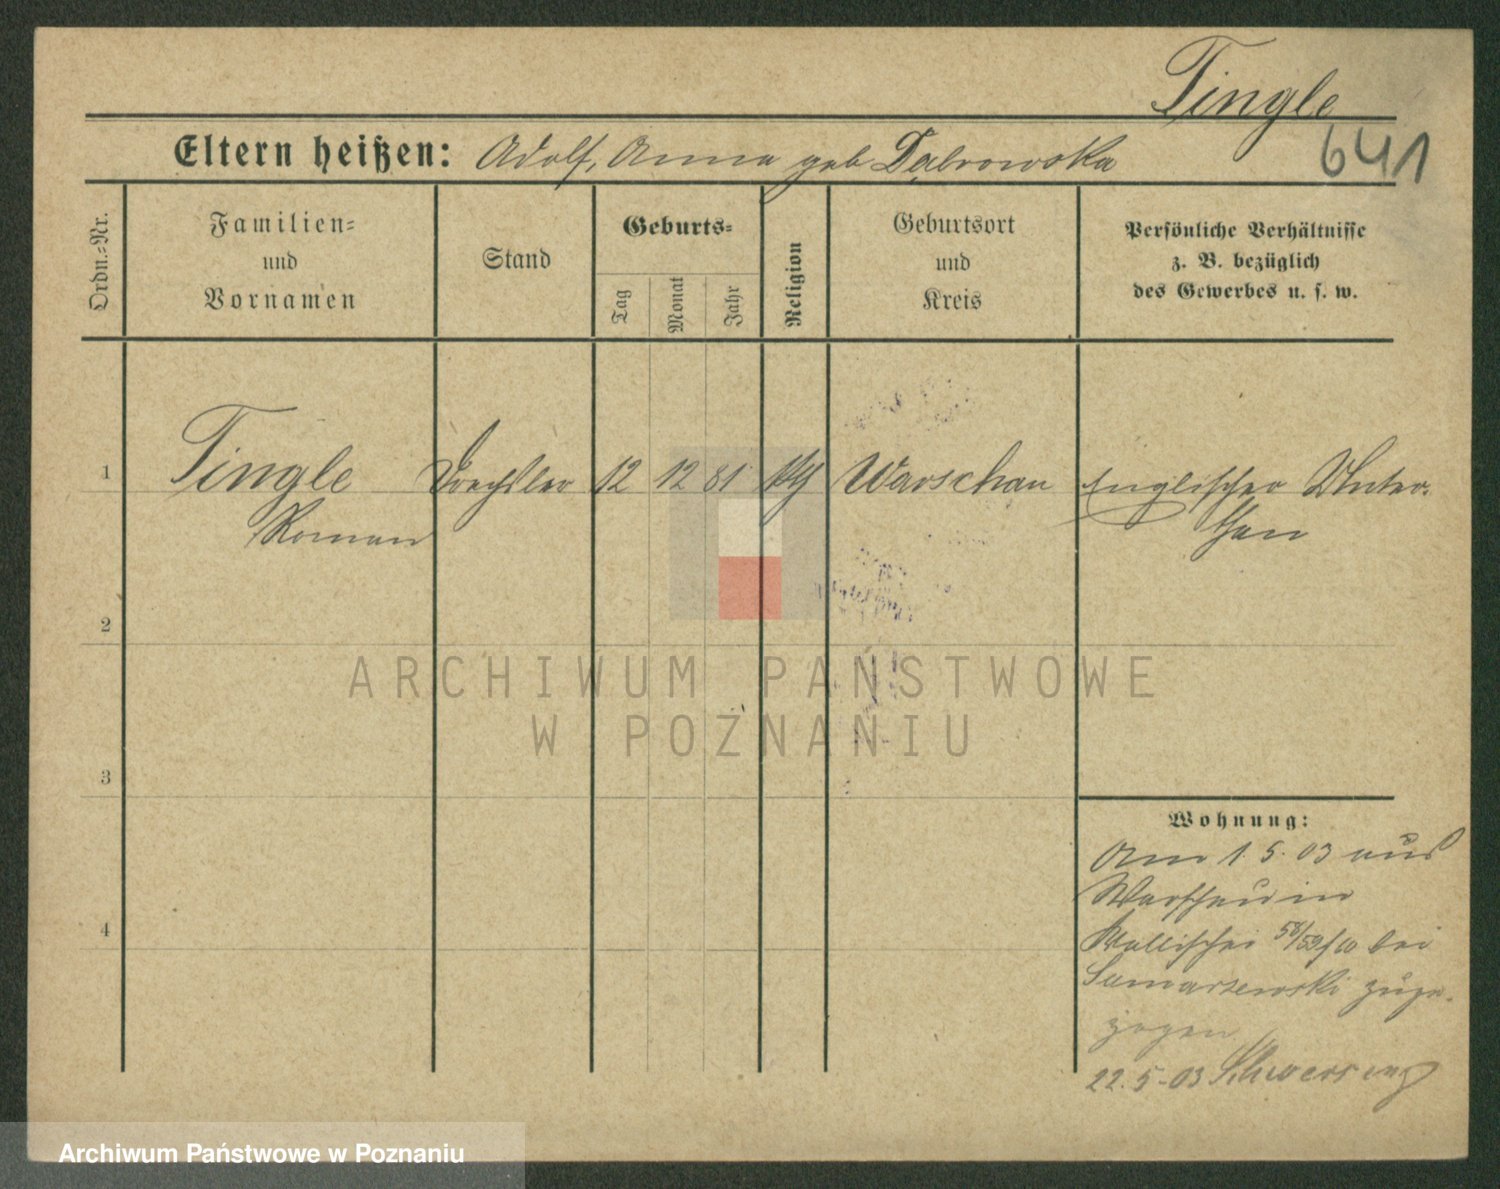 Tingle
641
Eltern heißen: Adolf, Anna geb Dąbrowska
Ordn.=Nr.
Familien=
und
Vornamen
Stand
Geburts=
Tag
Monat
Jahr
Religion
Geburtsort
und
Kreis
Persönliche Verhältnisse
z. B. bezüglich
des Gewerbes u. s. w.
1 Tingle Drechsler 12 12 81 Warschau Englischer Unter-
Roman than
2
3
4
Wohnung:
Am 1. 5. 03 aus
Warschau in
Wallischei 58/59 f/10 bei
Samarzewski zuge-
zogen
22. 5. 03 Schwersenz
ARCHIWUM PAŃSTWOWE
W POZNANIU
Archiwum Państwowe w Poznaniu